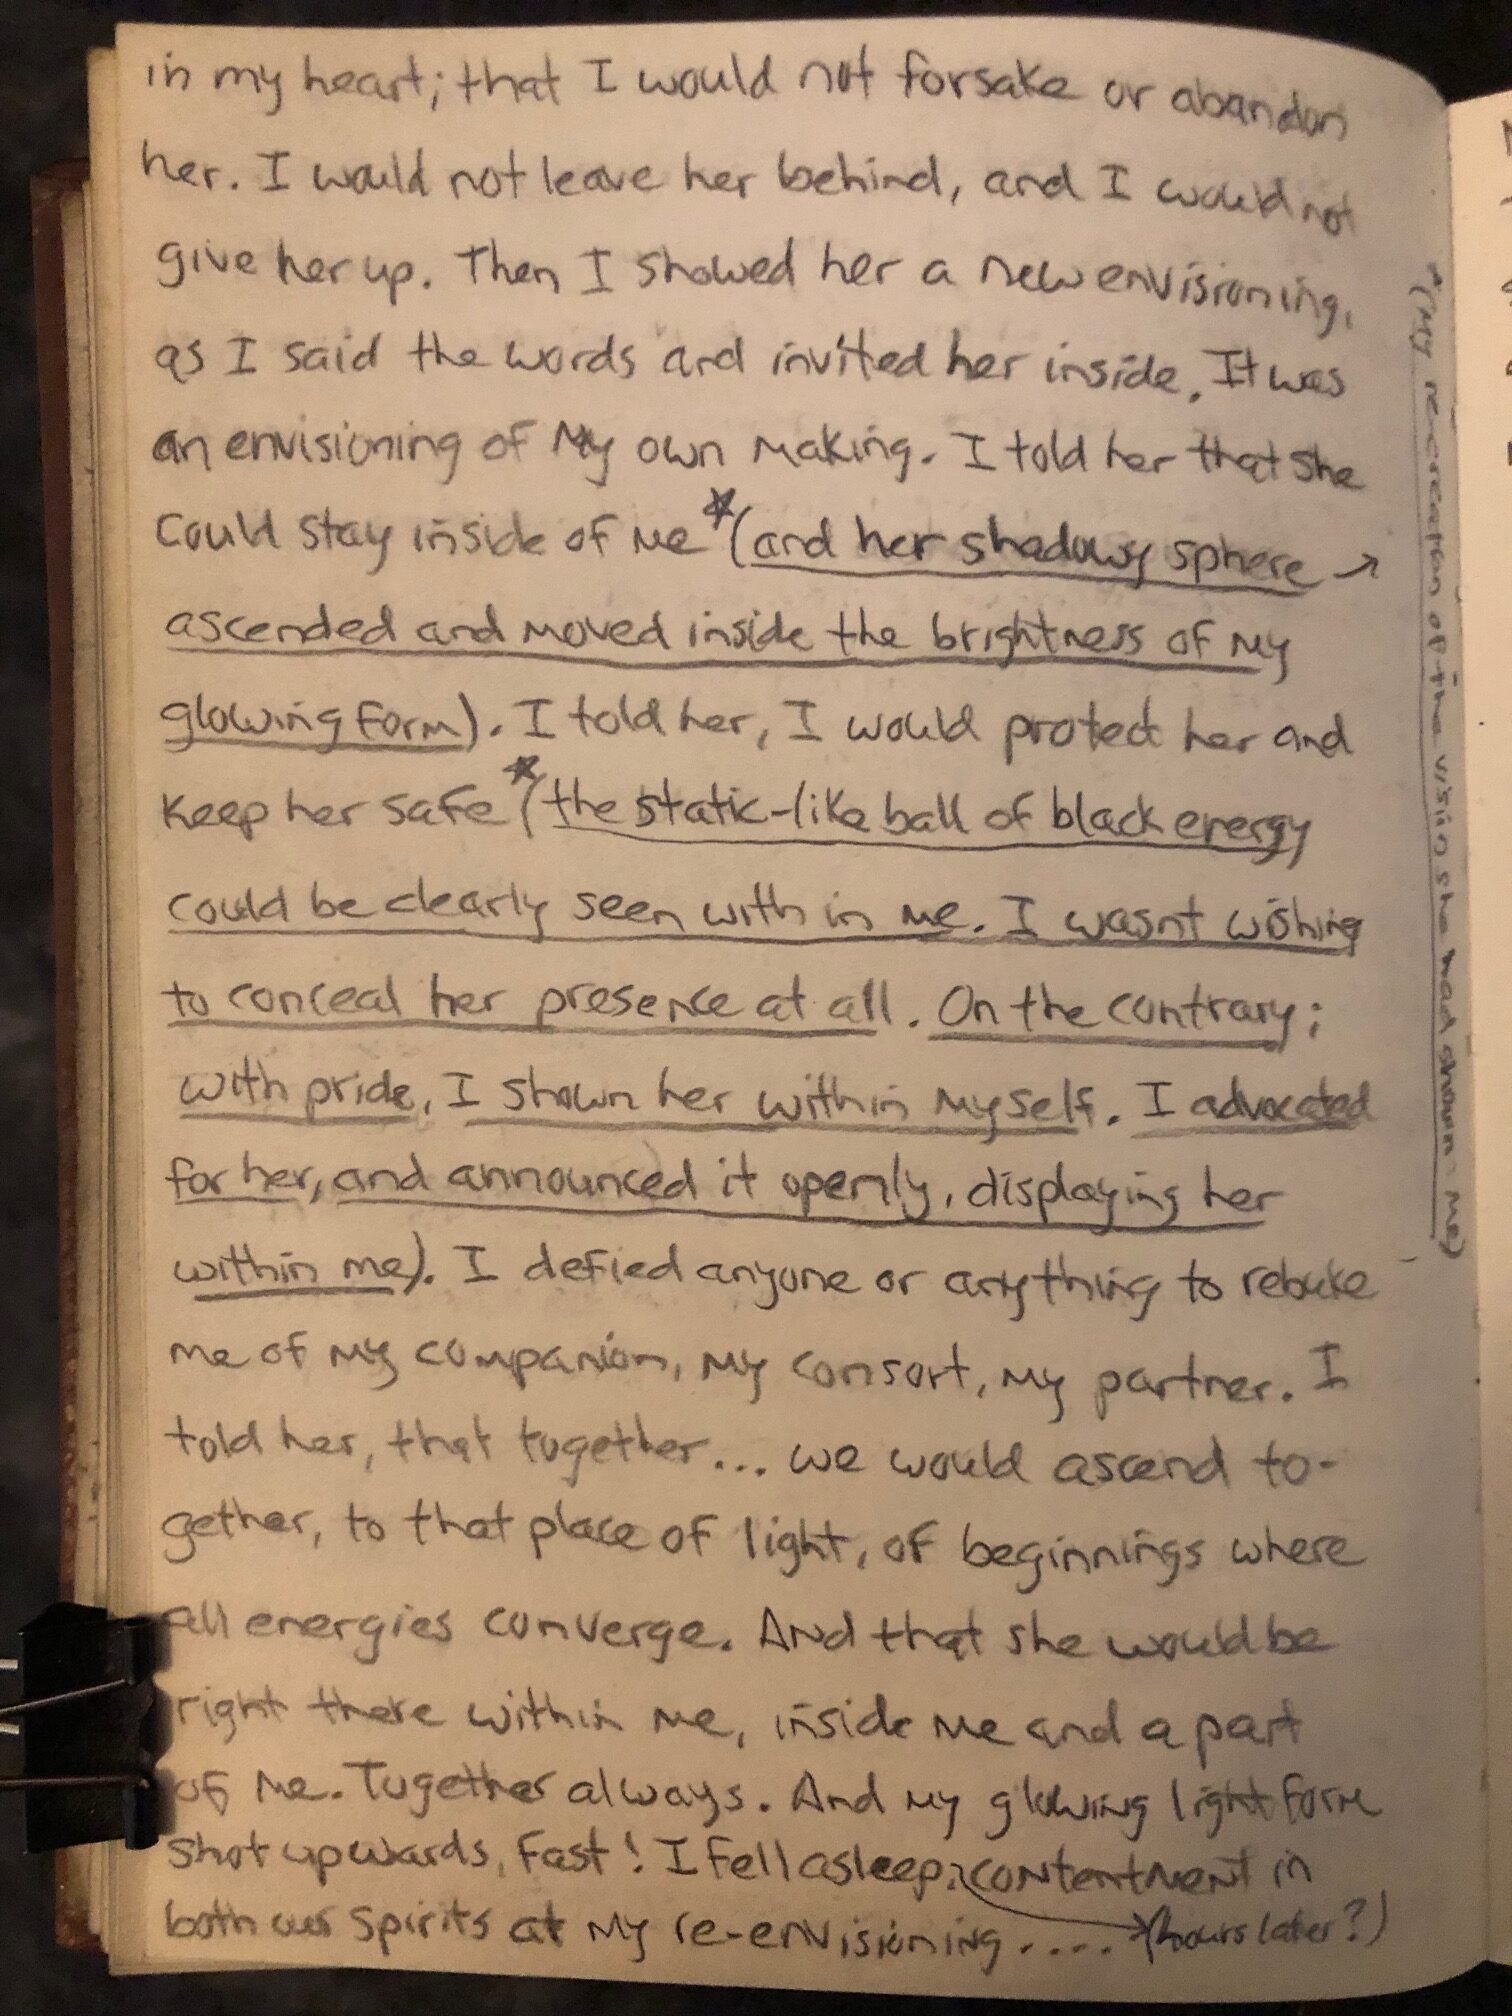 in my heart; that I would not forsake or abandon
her. I would not leave her behind, and I would not
give her up. Then I showed her a new envisioning,
as I said the words and invited her inside. It was
an envisioning of My own making. I told her that she
could stay inside of me *(and her shadowy sphere →
ascended and moved inside the brightness of my
glowing form). I told her, I would protect her and
keep her safe *(the static-like ball of black energy
could be clearly seen with in me. I wasnt wishing
to conceal her presence at all. On the contrary;
with pride, I shown her within myself. I advocated
for her, and announced it openly, displaying her
within me). I defied anyone or anything to rebuke
me of my companion, my consort, my partner. I
told her, that together... we would ascend to-
gether, to that place of light, of beginnings where
all energies converge. And that she would be
right there within me, inside me and a part
of me. Together always. And my glowing light form
shot upwards, fast! I fell asleep, contentment in
both our spirits at my re-envisioning .... *(hours later?)
*(My re-creation of the vision she had shown me)